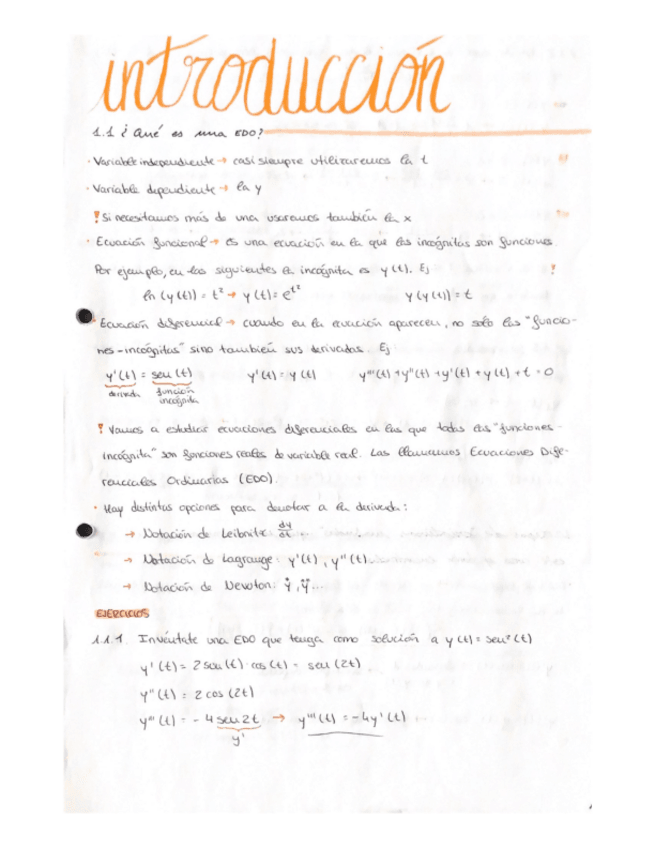 introducción
1.1 ¿Qué es una EDO?
· Variable independiente → casi siempre utilizaremos la t
· Variable dependiente → la y
! Si necesitamos más de una usaremos también la x
· Ecuación funcional → es una ecuación en la que las incógnitas son funciones.
Por ejemplo, en las siguientes la incógnita es y(t). Ej
ln (y(t)) = t² → y(t) = e^t² y(y(t)) = t
· Ecuación diferencial → cuando en la ecuación aparecen, no solo las "funcio-
nes-incógnitas" sino también sus derivadas. Ej
y'(t) = sen(t) y'(t) = y(t) y'''(t) + y''(t) + y'(t) + y(t) + t = 0
derivada función
incógnita
! Vamos a estudiar ecuaciones diferenciales en las que todas las "funciones-
incógnita" son funciones reales de variable real. Las llamamos Ecuaciones Dife-
renciales Ordinarias (EDO).
· Hay distintas opciones para denotar a la derivada:
→ Notación de Leibnitz: dy/dt ...
→ Notación de Lagrange: y'(t), y''(t)...
→ Notación de Newton: ẏ, ÿ...
EJERCICIOS
1.1.1. Invéntate una EDO que tenga como solución a y(t) = sen²(t)
y'(t) = 2 sen(t) · cos(t) = sen(2t)
y''(t) = 2 cos(2t)
y'''(t) = - 4 sen 2t → y'''(t) = -4y'(t)
y'